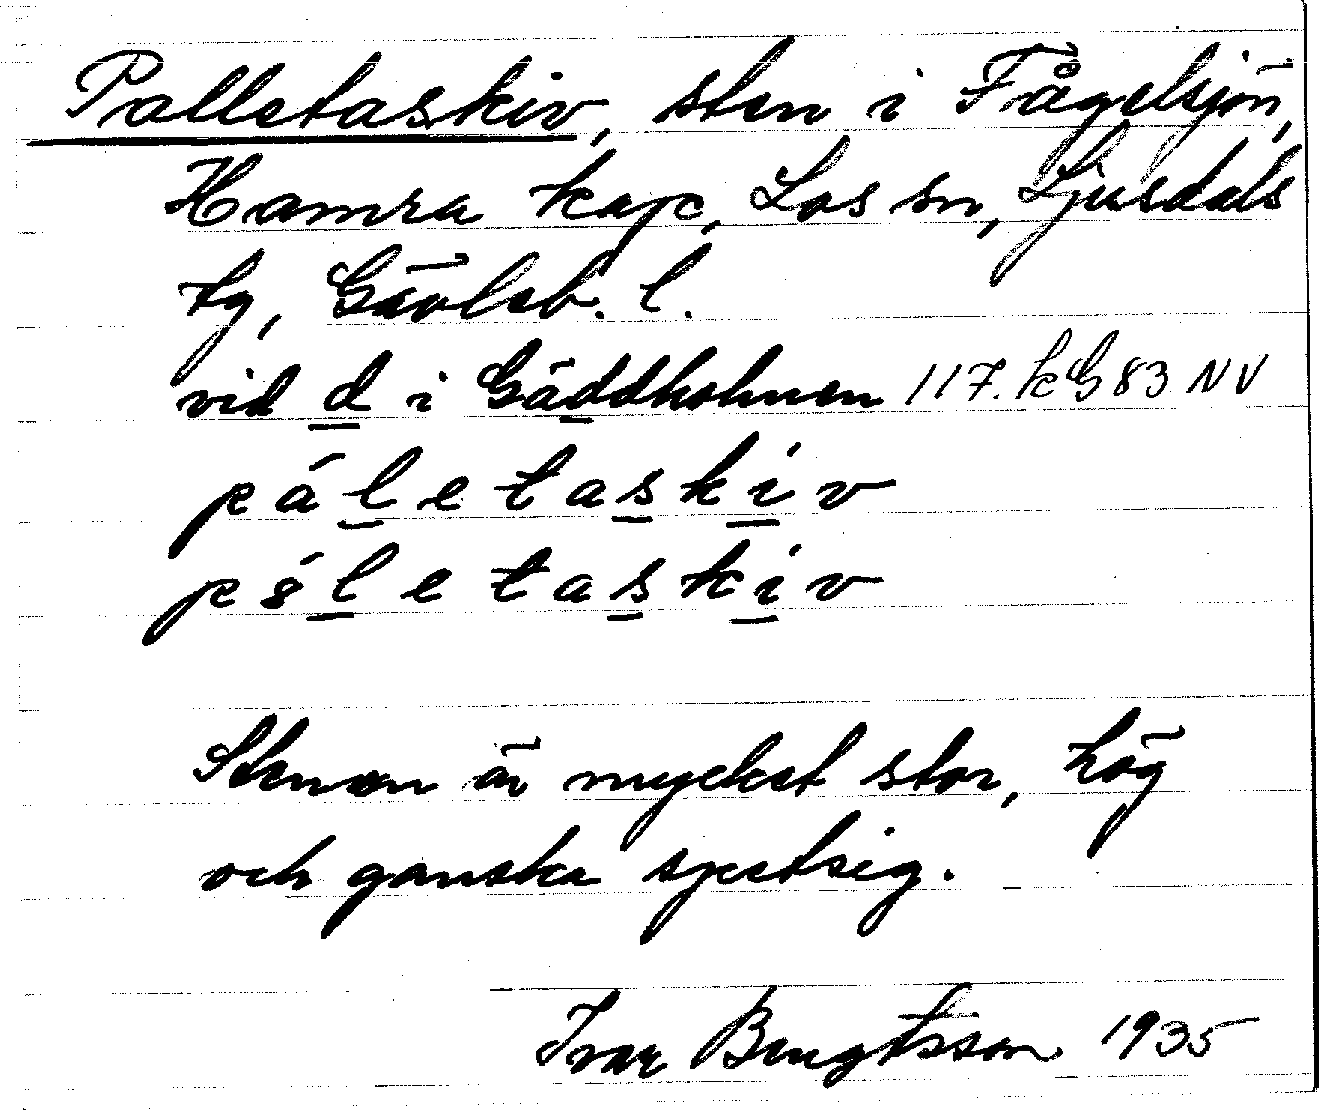 Palletaskiv, sten i Fågelsjön,
Hamra kap, Los sn, Ljusdals
tg, Gävleb. l.
vid d i Gäddholmen 117. kG 83 NV
páletaskiv
pśletaskiv
Stenen är mycket stor, hög
och ganska spetsig.
Ivar Bengtsson 1935